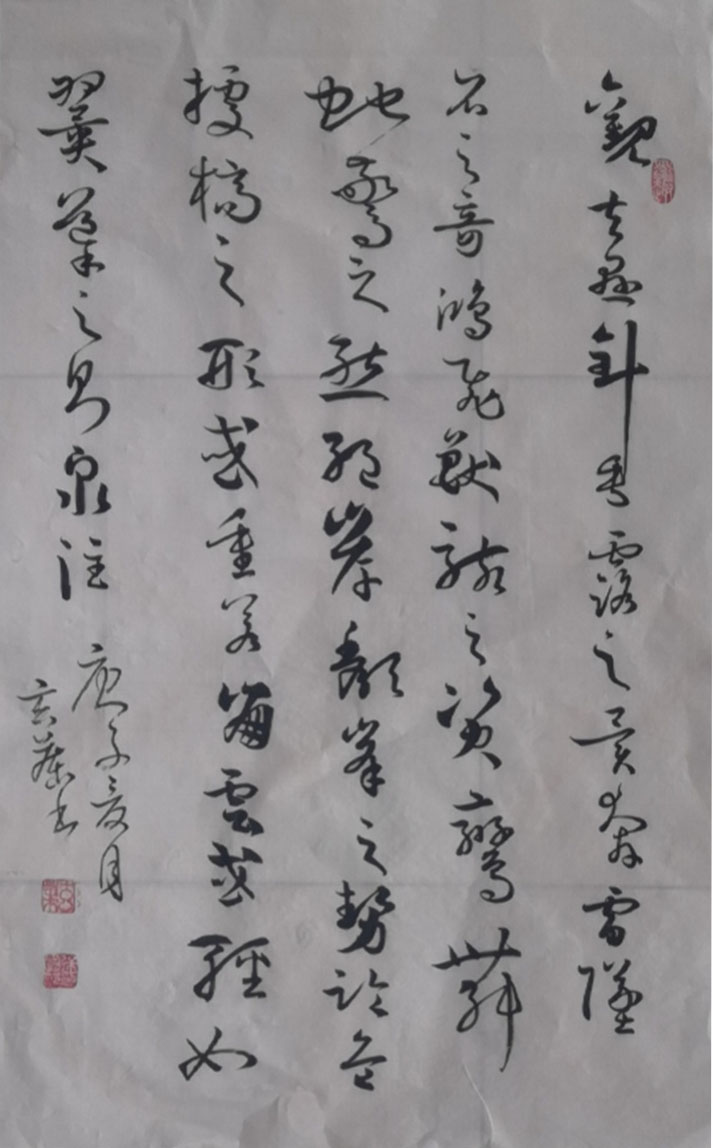 觀夫懸針垂露之異奔雷墜
石之奇鴻飛獸駭之資鸞舞
蛇驚之態絕岸頹峯之勢臨危
據槁之形或重若崩雲或輕如
翼導之則泉注
庚子夏月
书